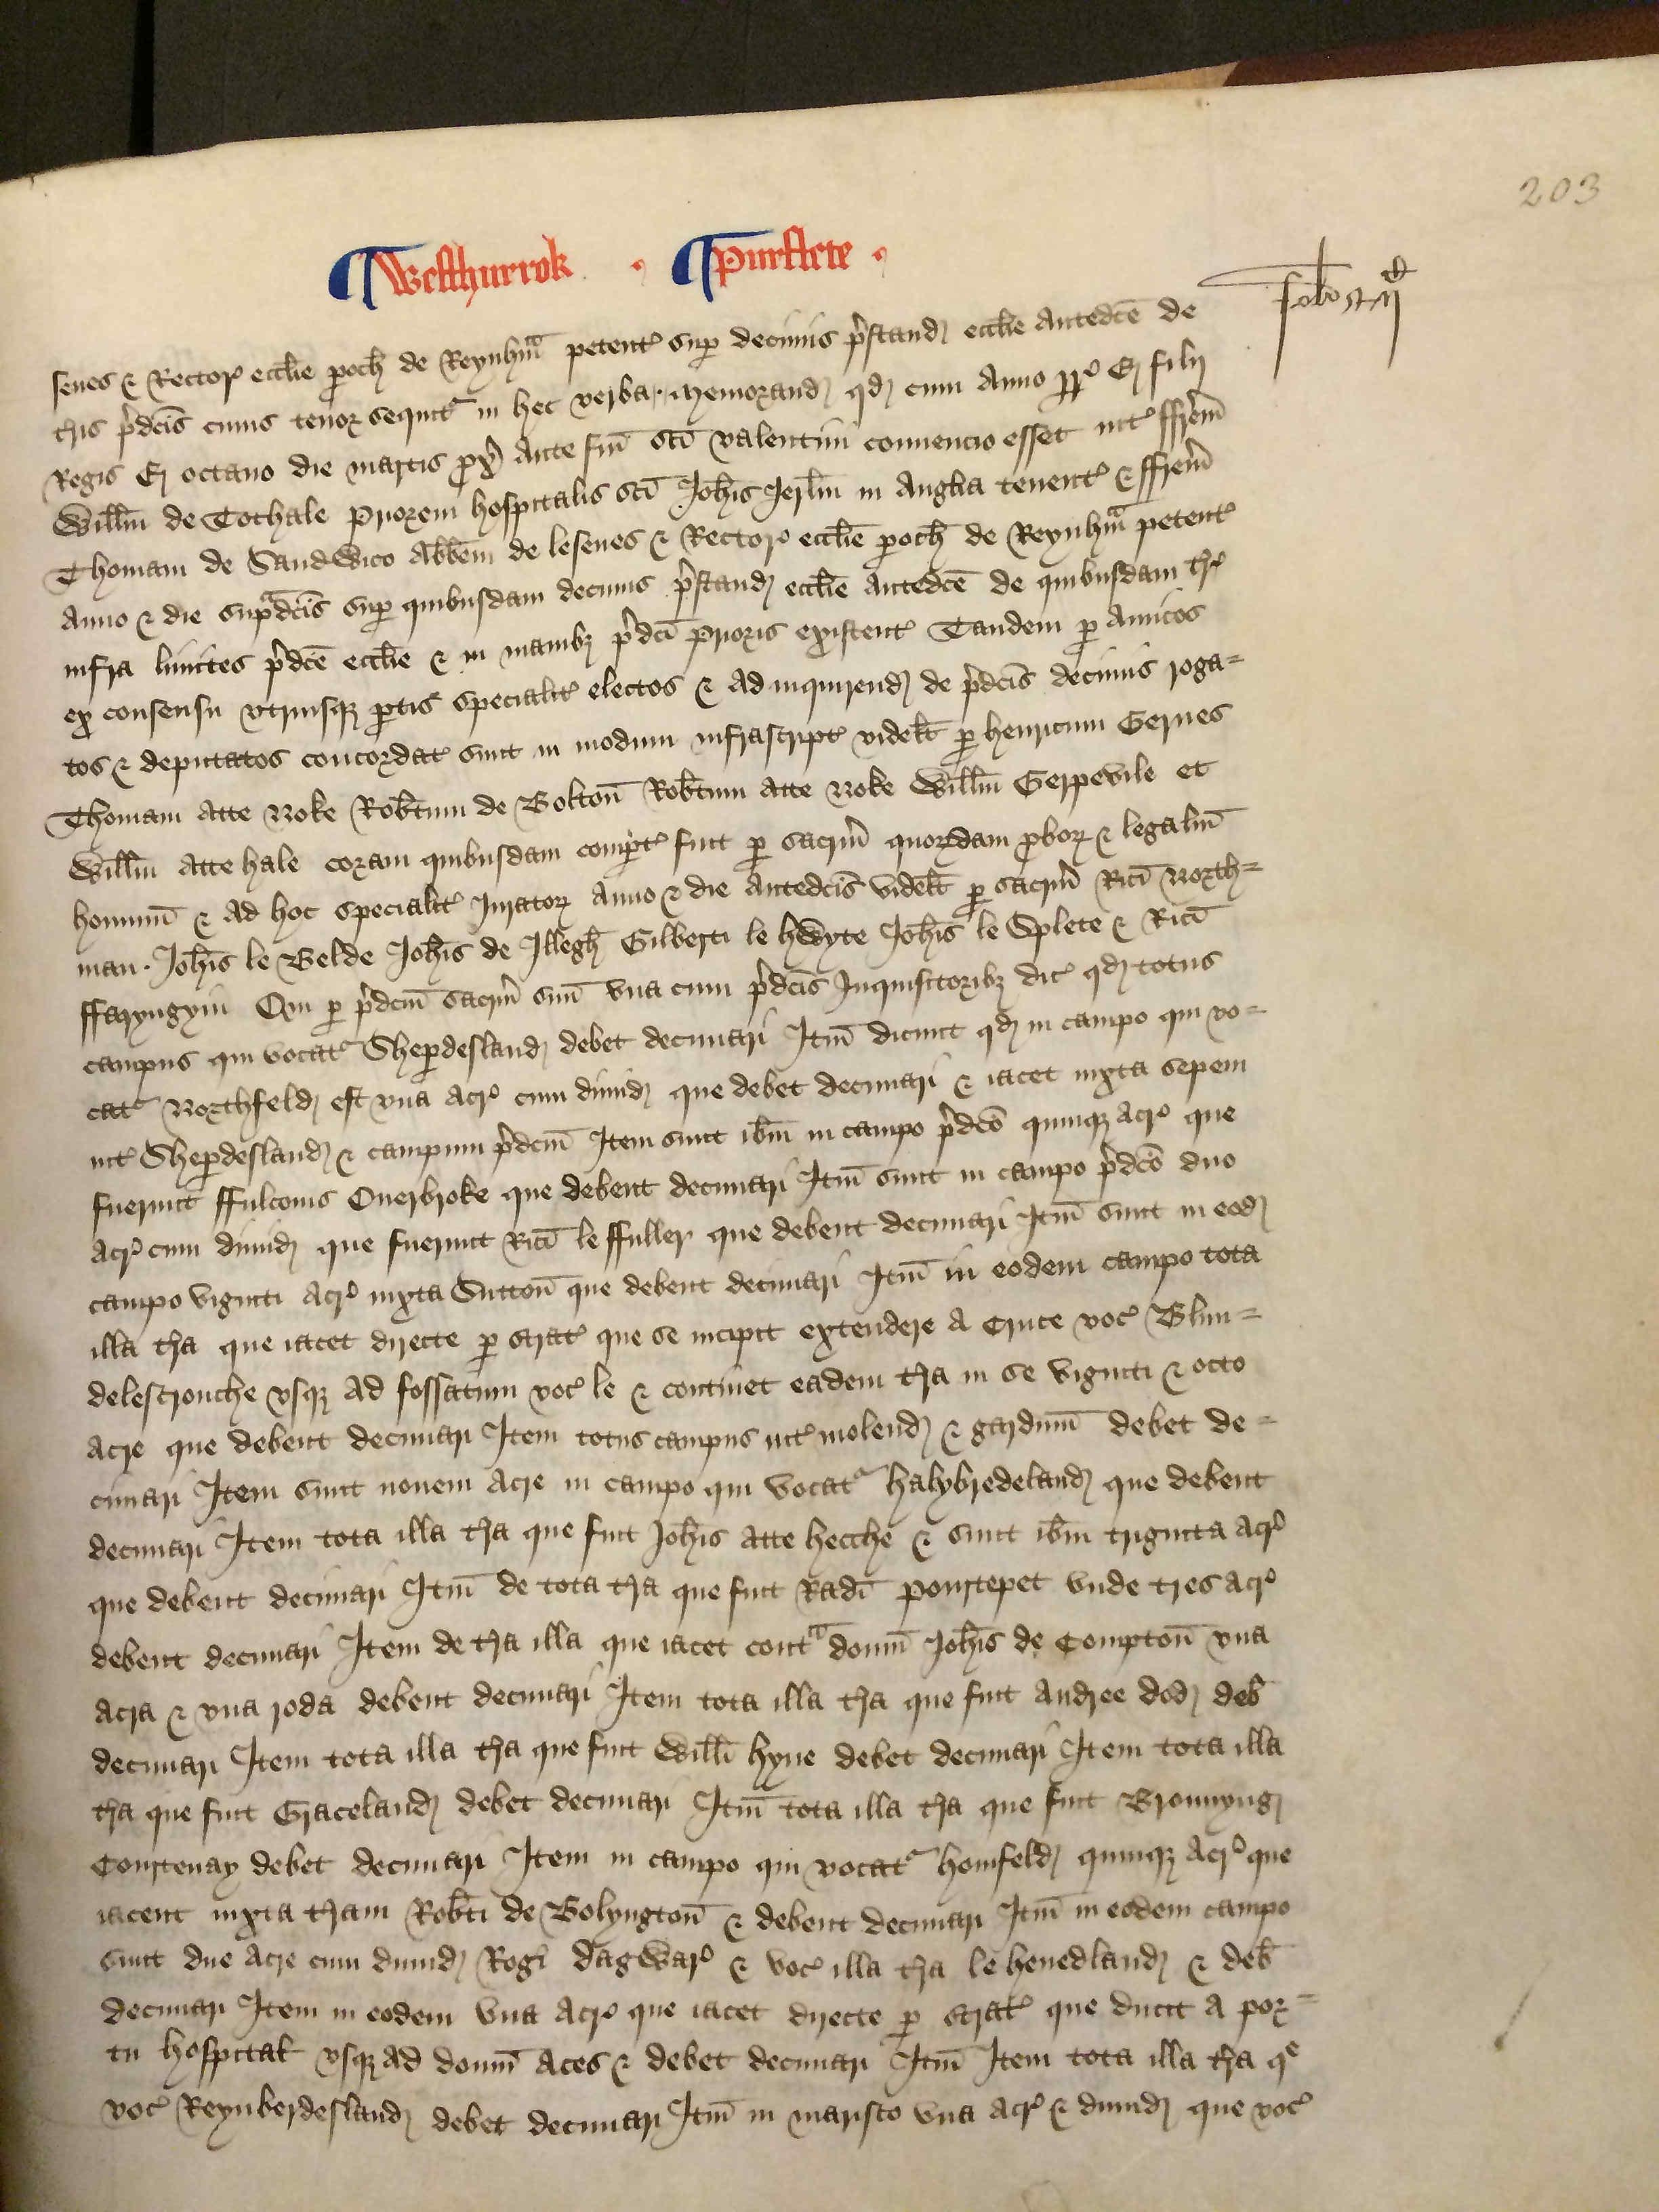 203
¶ Westhurrok . ¶ Purflete .
senes & Rector ecclie poch de Reynhma petent sup decimis pstand ecclie antedce de
tris pdcis cuius tenor sequit in hec verba . Memorand qd cum Anno rr E filij
Regis E octauo die martis prox Ante fm sci valentini conuencio esset int ffrem
Willm de Tothale Priorem hospitalis sci Johis Jerlm in Anglia tenent & ffrem
Thomam de Sandwico Abbem de lesenes & Rector ecclie poch de Reynhma petent
Anno & die supadcis sup quibusdam decimis pstand ecclie antedce de quibusdam tr
infra limites pdce ecclie & in manibz pdci Prioris existent Tandem p Amicos
ex consensu vtriusqz ptis specialit electos & Ad inquirend de pdcis decimis roga=
tos & deputatos concordat sunt in modum infrascript videlt p henricum Gernes
Thomam atte Noke Robtum de Bolton Robtum atte Noke Willm Gerpevile et
Willm atte hale coram quibusdam compt fuit p sacrm quordam probor & legaliu
hominu & Ad hoc specialit Jurator Anno & die antedcis videlt p sacrm Rici North=
man . Johis le Belde Johis de Illegh Gilberti le hwyte Johis le Splete & Rici
ffaryngyin Qui p pdcm sacrm suu vna cum pdcis Inquisitoribz dic qd totus
campus qui vocat Sheperdesland debet decimari Itm dicunt qd in campo qui vo=
cat Northfeld est vna acr cum dimid que debet decimari & iacet iuxta sepem
int Sheperdesland & campum pdcm Item sunt ibm in campo pdco quinqz acr que
fuerunt ffulconis Ouerbroke que debent decimari Itm sunt in campo pdco duo
acr cum dimid que fuerunt Rici le ffuller que debent decimari Itm sunt in eod
campo viginti acr iuxta Sutton que debent decimari Itm in eodem campo tota
illa tra que iacet directe p strat que se incipit extendere A Cruce voc Blun=
delescrouche vsqz Ad fossatum voc le & continet eadem tra in se viginti & octo
acre que debent decimari Item totus campus int molend & gardinu debet de=
cimari Item sunt nouem acre in campo qui vocat halybredeland que debent
decimari Item tota illa tra que fuit Johis atte hecche & sunt ibm triginta acr
que debent decimari Itm de tota tra que fuit Radi Pourtepet vnde tres acr
debent decimari Item de tra illa que iacet conta domu Johis de Compton vna
acra & vna roda debent decimari Item tota illa tra que fuit Andree dod deb
decimari Item tota illa tra que fuit Willi hyne debet decimari Item tota illa
tra que fuit Graceland debet decimari Itm tota illa tra que fuit Brounyng
Courtenay debet decimari Item in campo qui vocat homfeld quinqz acr que
iacent iuxta tram Robti de Bolyngton & debent decimari Itm in eodem campo
sunt due acre cum dimid Rogi dagwar & voc illa tra le heuedland & deb
decimari Item in eodem vna acr que iacet directe p strat que ducit A por=
tu hospital vsqz ad domu Aces & debet decimari Itm Item tota illa tra qe
voc Reynberdesland debet decimari Itm in marisco vna acr & dimid que voc